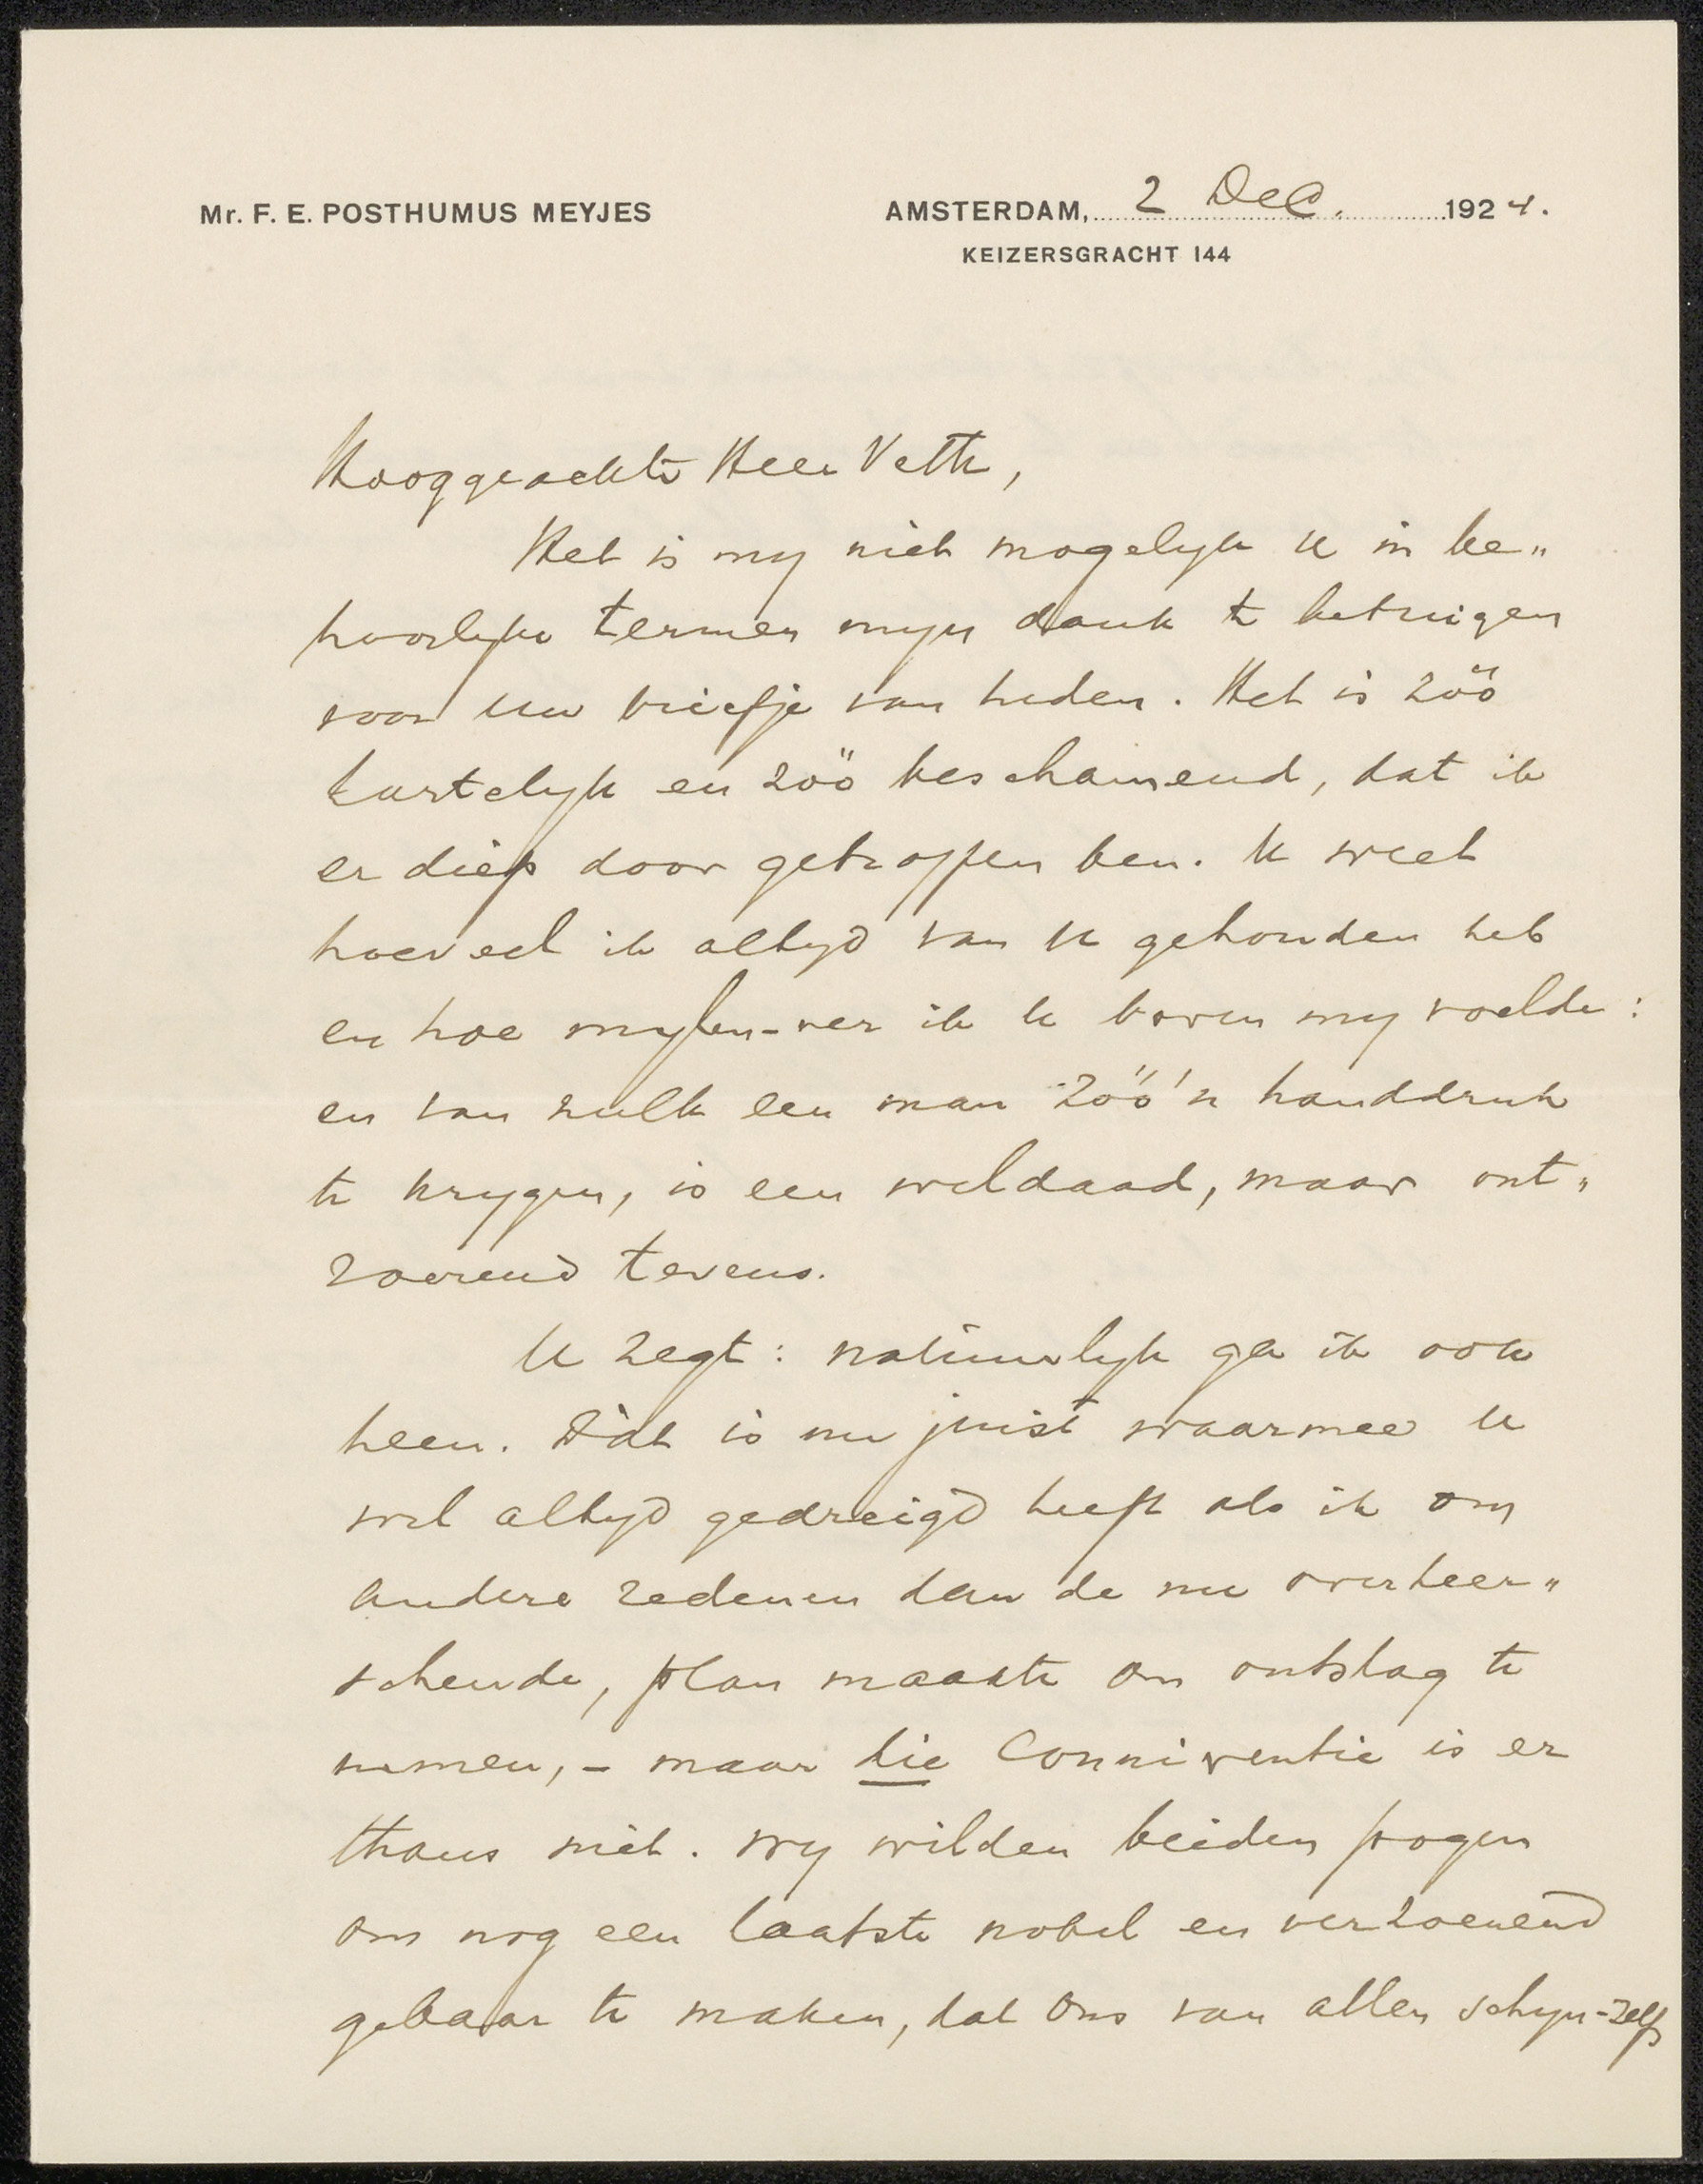 Mr. F. E. POSTHUMUS MEYJES
AMSTERDAM, 2 Dec. 1924.
KEIZERSGRACHT 144
Hooggeachte Heer Veth,
Het is my niet mogelyk U in be„
hoorlyke termen myn dank te betuigen
voor Uw briefje van heden. Het is zóó
hartelyk en zóó beschamend, dat ik
er diep door getroffen ben. U weet
hoeveel ik altyd van U gehouden heb
en hoe mylen-ver ik U boven my voelde:
en van zulk een man zóó'n handdruk
te krygen, is een weldaad, maar ont„
roerend tevens.
U zegt: natuurlyk ga ik ook
heen. Dàt is nu juist waarmee U
wel altyd gedreigd heeft als ik om
andere redenen dan de nu overheer„
schende, plan maakte om ontslag te
nemen, - maar die Conniventie is er
thans niet. Wy wilden beiden pogen
om nog een laatste nobel en verzoenend
gebaar te maken, dat ons van allen schyn-zelfs